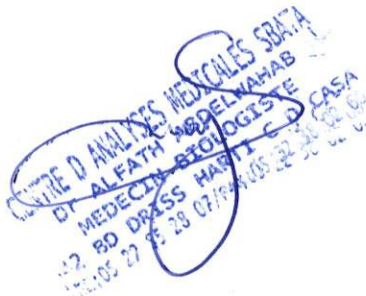 CENTRE D ANALYSES MEDICALES SBATA
Dr ALFATH ABDELWAHAB
MEDECIN BIOLOGISTE
BD DRISS HARTI C D CASA
05 22 28 07